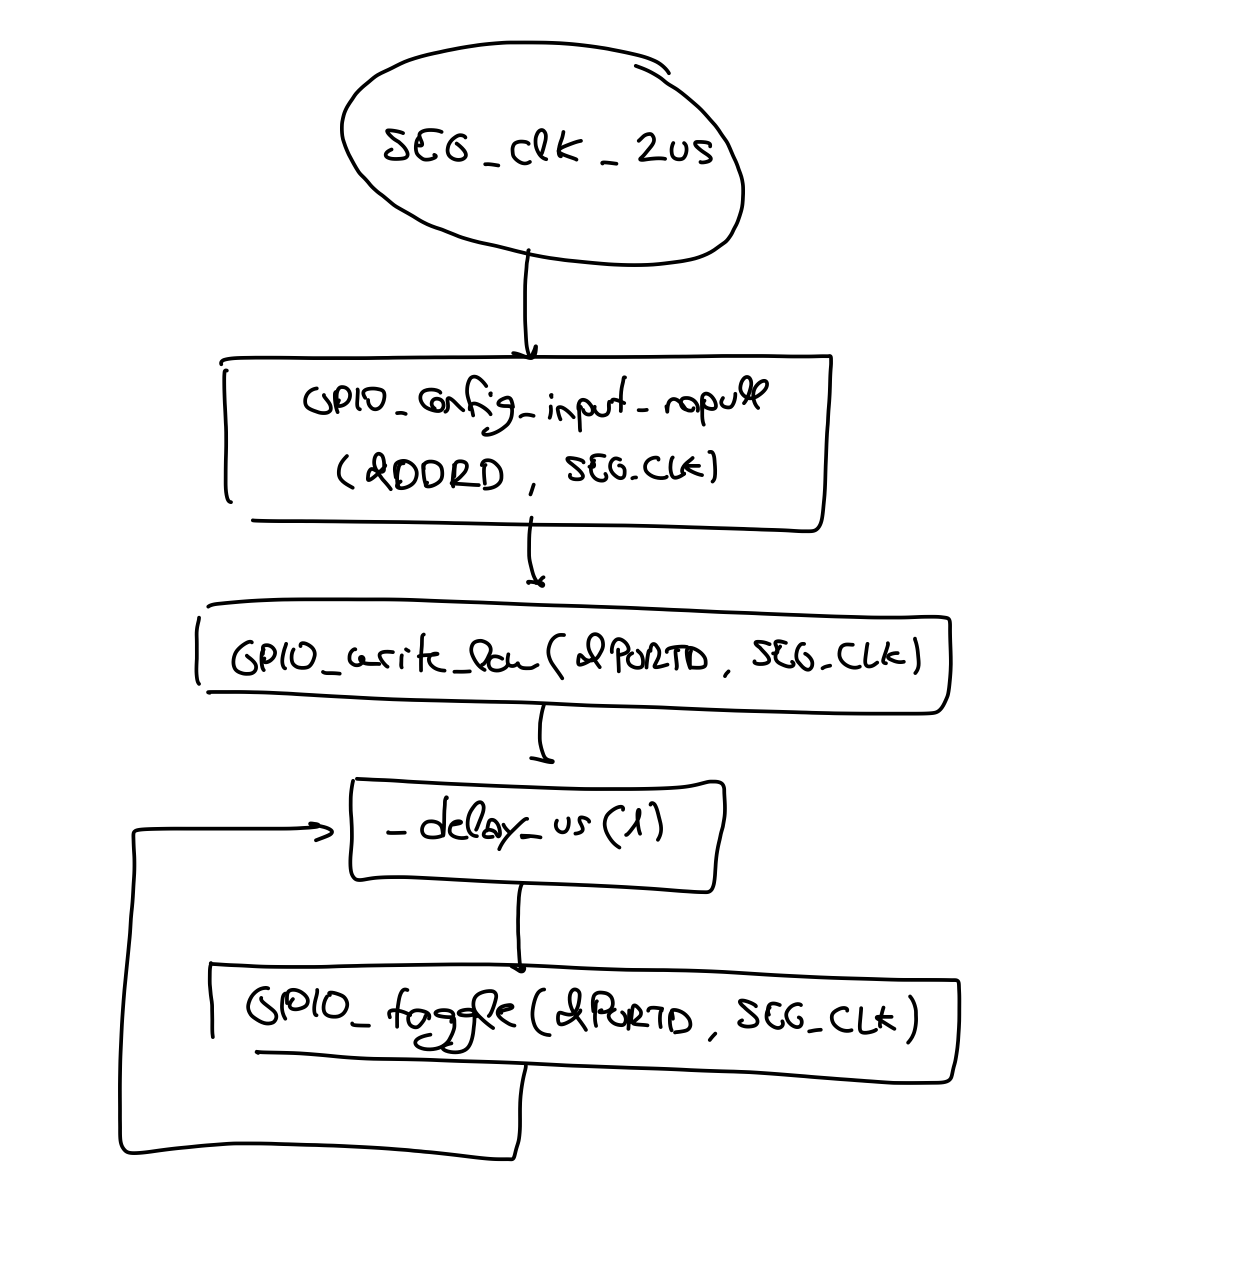 SEG_clk_2us
GPIO_config_input_nopull
(&DDRD, SEG_CLK)
GPIO_write_low(&PORTD, SEG_CLK)
_delay_us(1)
GPIO_toggle(&PORTD, SEG_CLK)